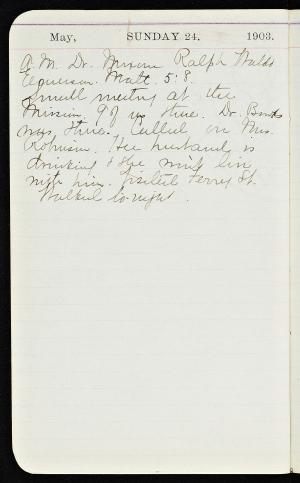 May, SUNDAY 24. 1903.
A.M. Dr. Ralph Waldo
Emerson. Matt. 5:8.
Small meeting at the
Mission. 9 of us there. Dr. Banks
was there. Called on Mrs.
Robinson. Her husband is
drinking & she won't live
with him. Visited Ferry St.
Walked to-night.